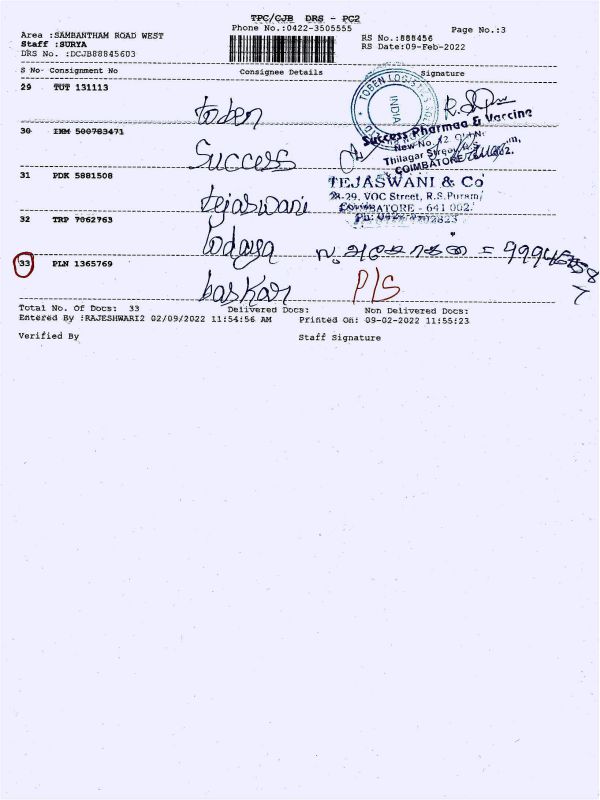 TPC/CJB DRS - PC2
Phone No.:0422-3505555
Page No.:3
Area :SAMBANTHAM ROAD WEST
RS No.:888456
Staff :SURYA
RS Date:09-Feb-2022
DRS No. :DCJB88845603
S No- Consignment No Consignee Details Signature
29 TUT 131113
toben
TOBEN LOGISTICS
INDIA
30 IXM 500783471
Success
Success Pharmaa & Vaccine
New No. 42
Thilagar Street,
COIMBATORE
31 PDK 5881508
tejaswani
TEJASWANI & Co
28-29, VOC Street, R.S.Puram,
COIMBATORE - 641 002.
32 TRP 7062763
33 PLN 1365769
baskar P/S
Total No. Of Docs: 33 Delivered Docs: Non Delivered Docs:
Entered By :RAJESHWARI2 02/09/2022 11:54:56 AM Printed On: 09-02-2022 11:55:23
Verified By Staff Signature